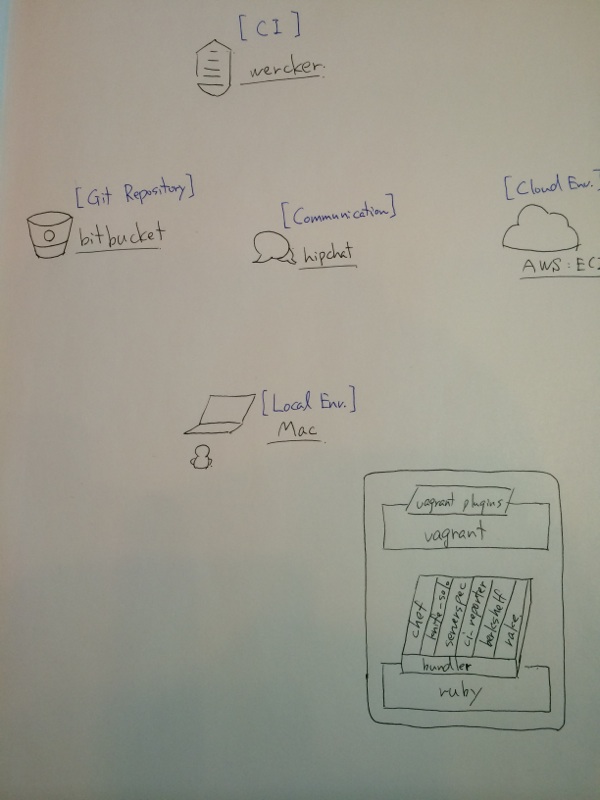 [CI]
wercker.
[Git Repository]
bitbucket
[Communication]
hipchat
[Cloud Env.]
AWS: EC2
[Local Env.]
Mac
vagrant plugins
vagrant
chef
knife-solo
serverspec
ci-reporter
berkshelf
rake
bundler
ruby